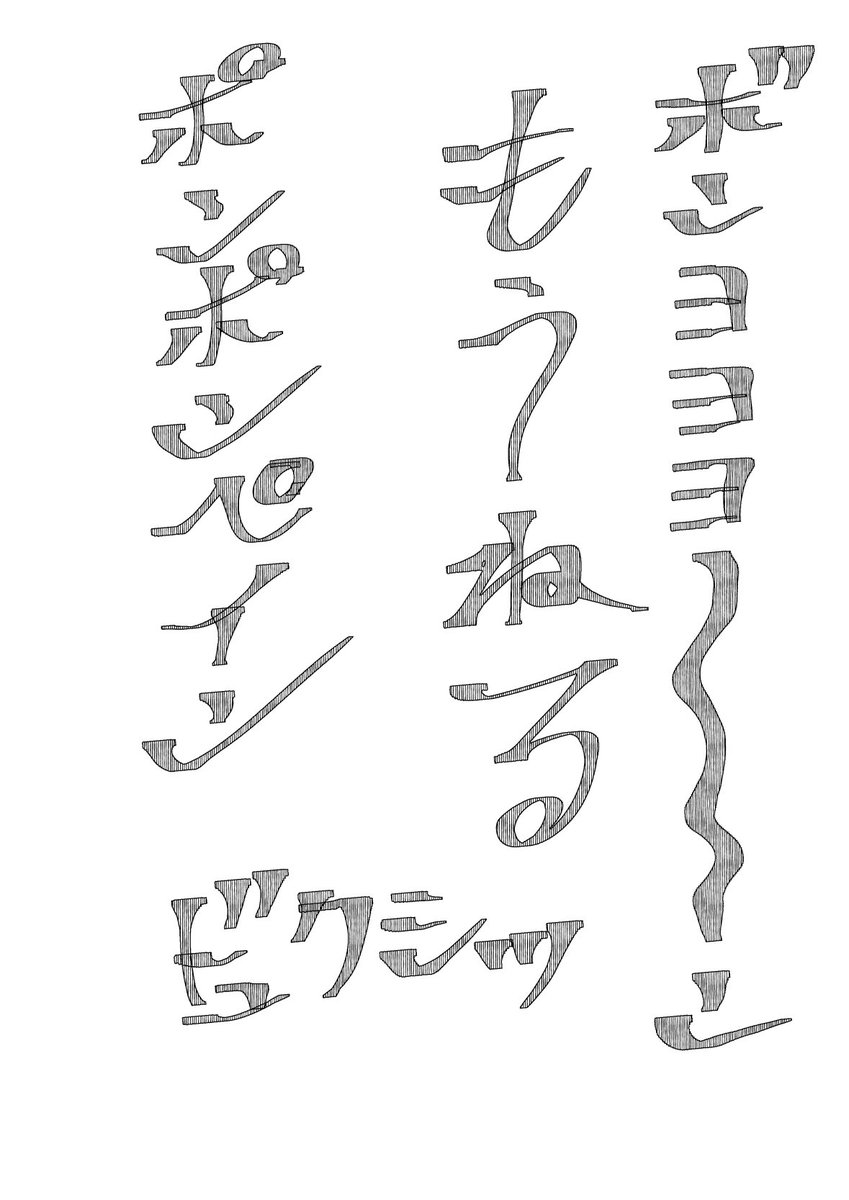 ボンヨヨヨ〜ン
もうねる
ポンポンペイン
ビュクシッ